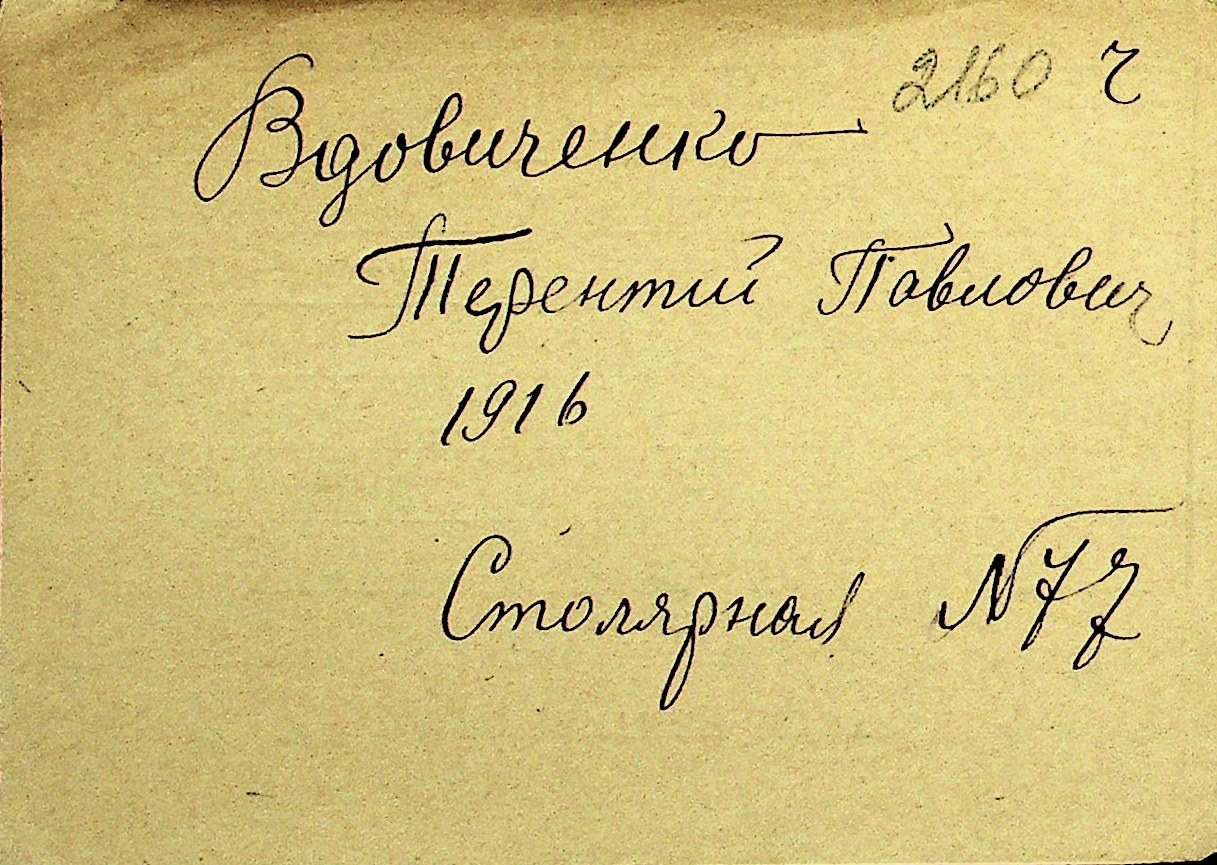 2160 ч
Вдовиченко
Терентий Павлович
1916
Столярная №77